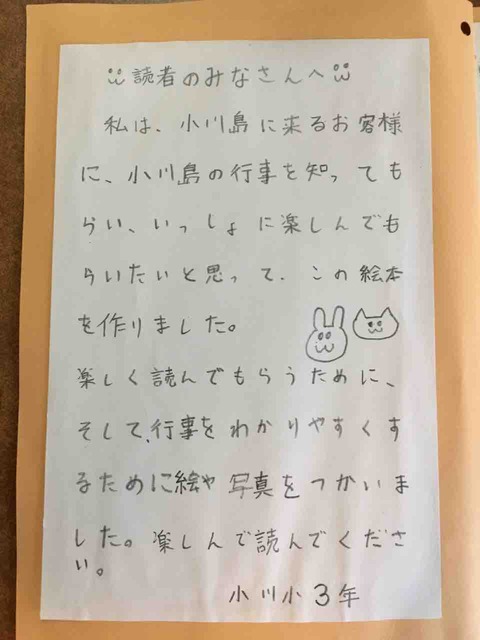 読者のみなさんへ
私は、小川島に来るお客様
に、小川島の行事を知っても
らい、いっしょに楽しんでも
らいたいと思って、この絵本
を作りました。
楽しく読んでもらうために、
そして、行事をわかりやすくす
るために絵や写真をつかいま
した。楽しんで読んでくださ
い。
小川小3年